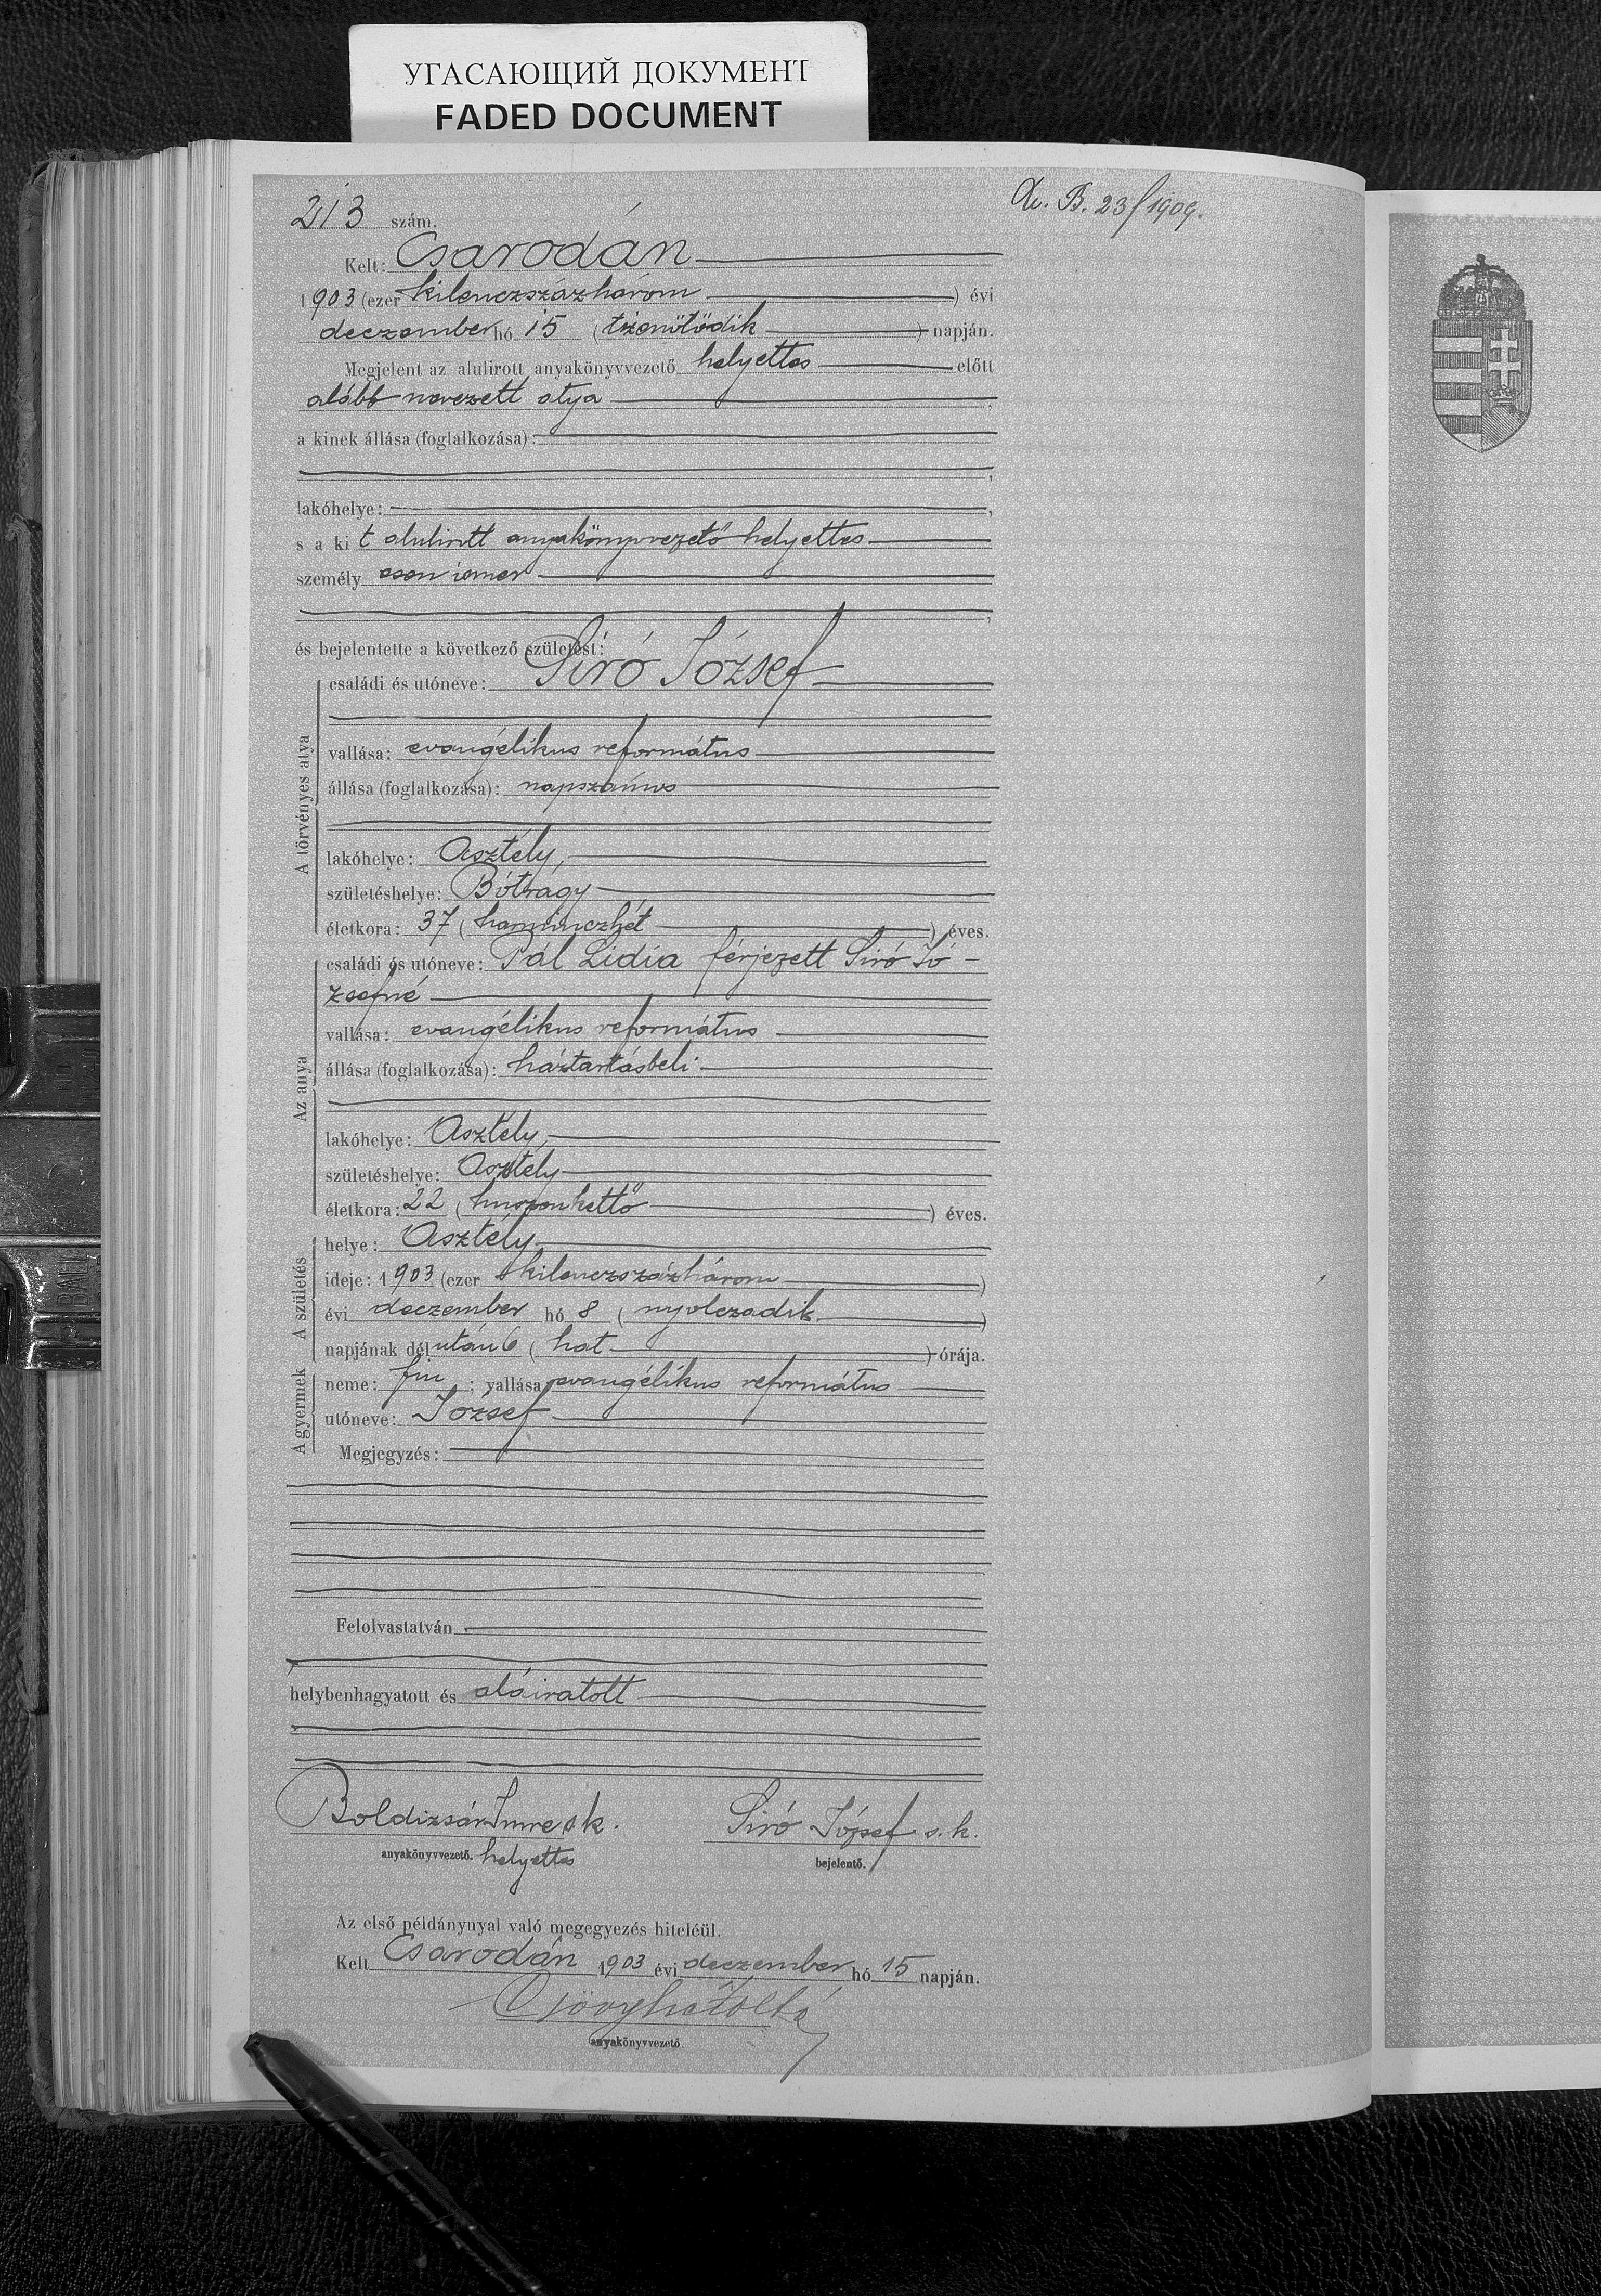 УГАСАЮЩИЙ ДОКУМЕНТ
FADED DOCUMENT
B. 23/1909.
213 szám.
Kelt: Csarodán
1903 (ezer kilenczszázhárom ) évi
deczember hó 15 (tizenötödik ) napján.
Megjelent az alulirott anyakönyvvezető helyettes előtt
alább nevezett atya ,
a kinek állása (foglalkozása):
,
lakóhelye: ,
s a ki t alulirott anyakönyvvezető helyettes
személy esen ismer
,
és bejelentette a következő születést:
A törvényes atya
családi és utóneve: Siró József
vallása: evangélikus református
állása (foglalkozása): napszámos
lakóhelye: Asztély,
születéshelye: Bótrágy
életkora: 37 (harminczhét ) éves.
Az anya
családi és utóneve: Pál Lidia férjezett Siró Jó-
zsefné
vallása: evangélikus református
állása (foglalkozása): háztartásbeli
lakóhelye: Asztély,
születéshelye: Asztély
életkora: 22 (huszonkettő ) éves.
A születés
helye: Asztély,
ideje: 1903 (ezer kilenczszázhárom )
évi deczember hó 8 (nyolczadik )
napjának délután 6 (hat ) órája.
A gyermek
neme: fiu ; vallása: evangélikus református
utóneve: József
Megjegyzés:
Felolvastatván
helybenhagyatott és aláiratott
Boldizsár Imre sk. Siró József s. k.
anyakönyvvezető. helyettes bejelentő.
Az első példánynyal való megegyezés hiteléül.
Kelt Csarodán 1903 évi deczember hó 15 napján.
anyakönyvvezető.